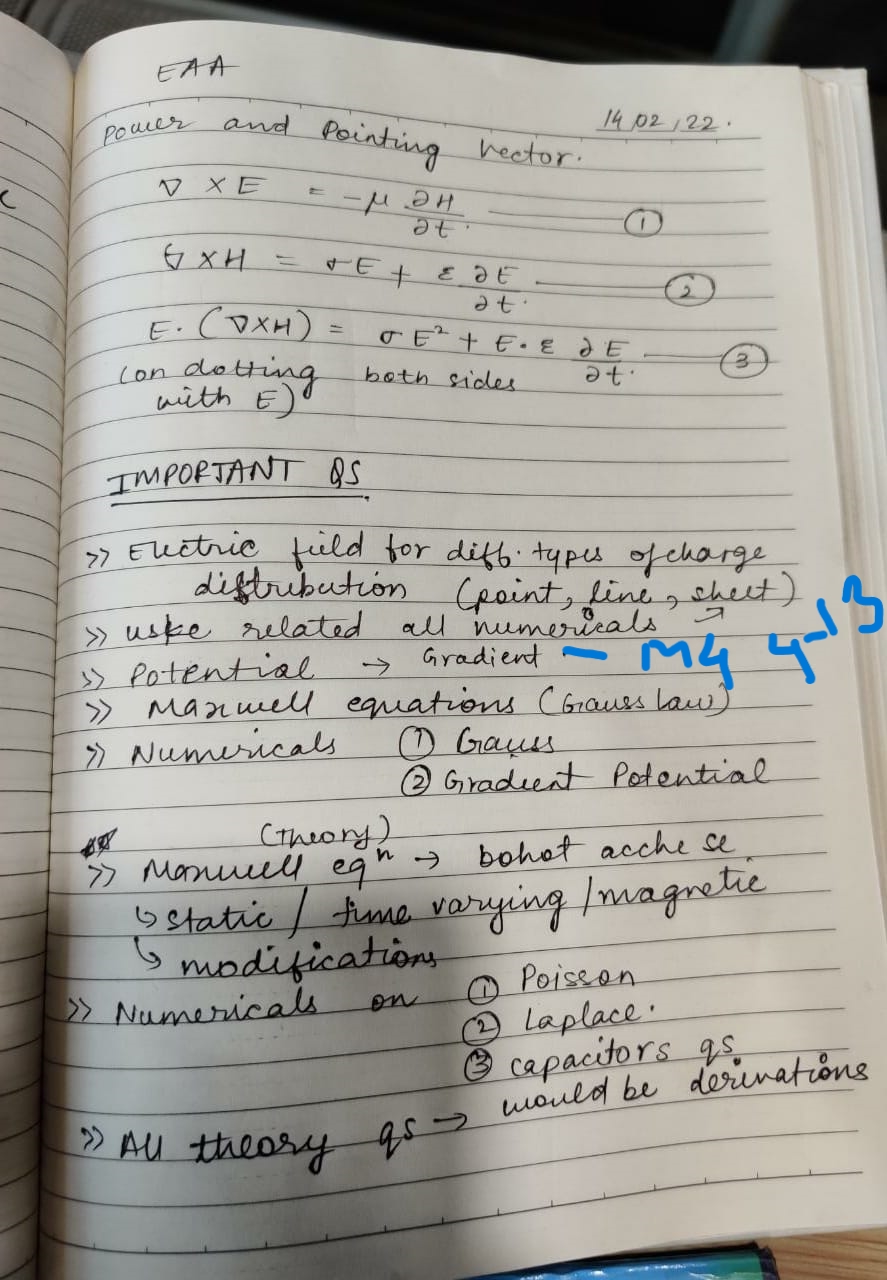 EAA
14/02/22.
Power and Pointing Vector.
∇ × E = -μ ∂H/∂t. ——— ①
∇ × H = σE + ε ∂E/∂t. ——— ②
E. (∇×H) = σE² + E.ε ∂E/∂t. ——— ③
(on dotting both sides
with E)
IMPORTANT QS
>> Electric field for diff. types of charge
distribution (point, line, sheet)
>> uske related all numericals ↗
>> Potential → Gradient — M4 4-13
>> Maxwell equations (Gauss law)
>> Numericals ① Gauss
② Gradient Potential
(Theory)
>> Maxwell eqⁿ → bohot acche se
↳ static / time varying / magnetic
↳ modifications
>> Numericals on ① Poisson
② Laplace.
③ capacitors qs
>> All theory qs → would be derivations